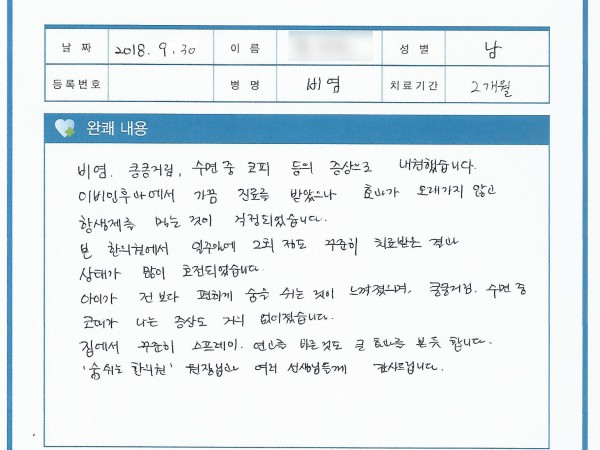 날 짜 2018. 9. 30 이 름 성 별 남
등록번호 병 명 비염 치료기간 2개월
완쾌 내용
비염, 킁킁거림, 수면 중 코피 등의 증상으로 내원했습니다.
이비인후과에서 가끔 진료를 받았으나 효과가 오래가지 않고
항생제를 먹는 것이 걱정되었습니다.
본 한의원에서 일주일에 2회 정도 꾸준히 치료받은 결과
상태가 많이 호전되었습니다.
아이가 전보다 편하게 숨을 쉬는 것이 느껴졌으며, 킁킁거림, 수면 중
코피가 나는 증상도 거의 없어졌습니다.
집에서 꾸준히 스프레이, 연고를 바른것도 큰 효과를 본듯 합니다.
'숨쉬는 한의원' 원장님과 여러 선생님들께 감사드립니다.